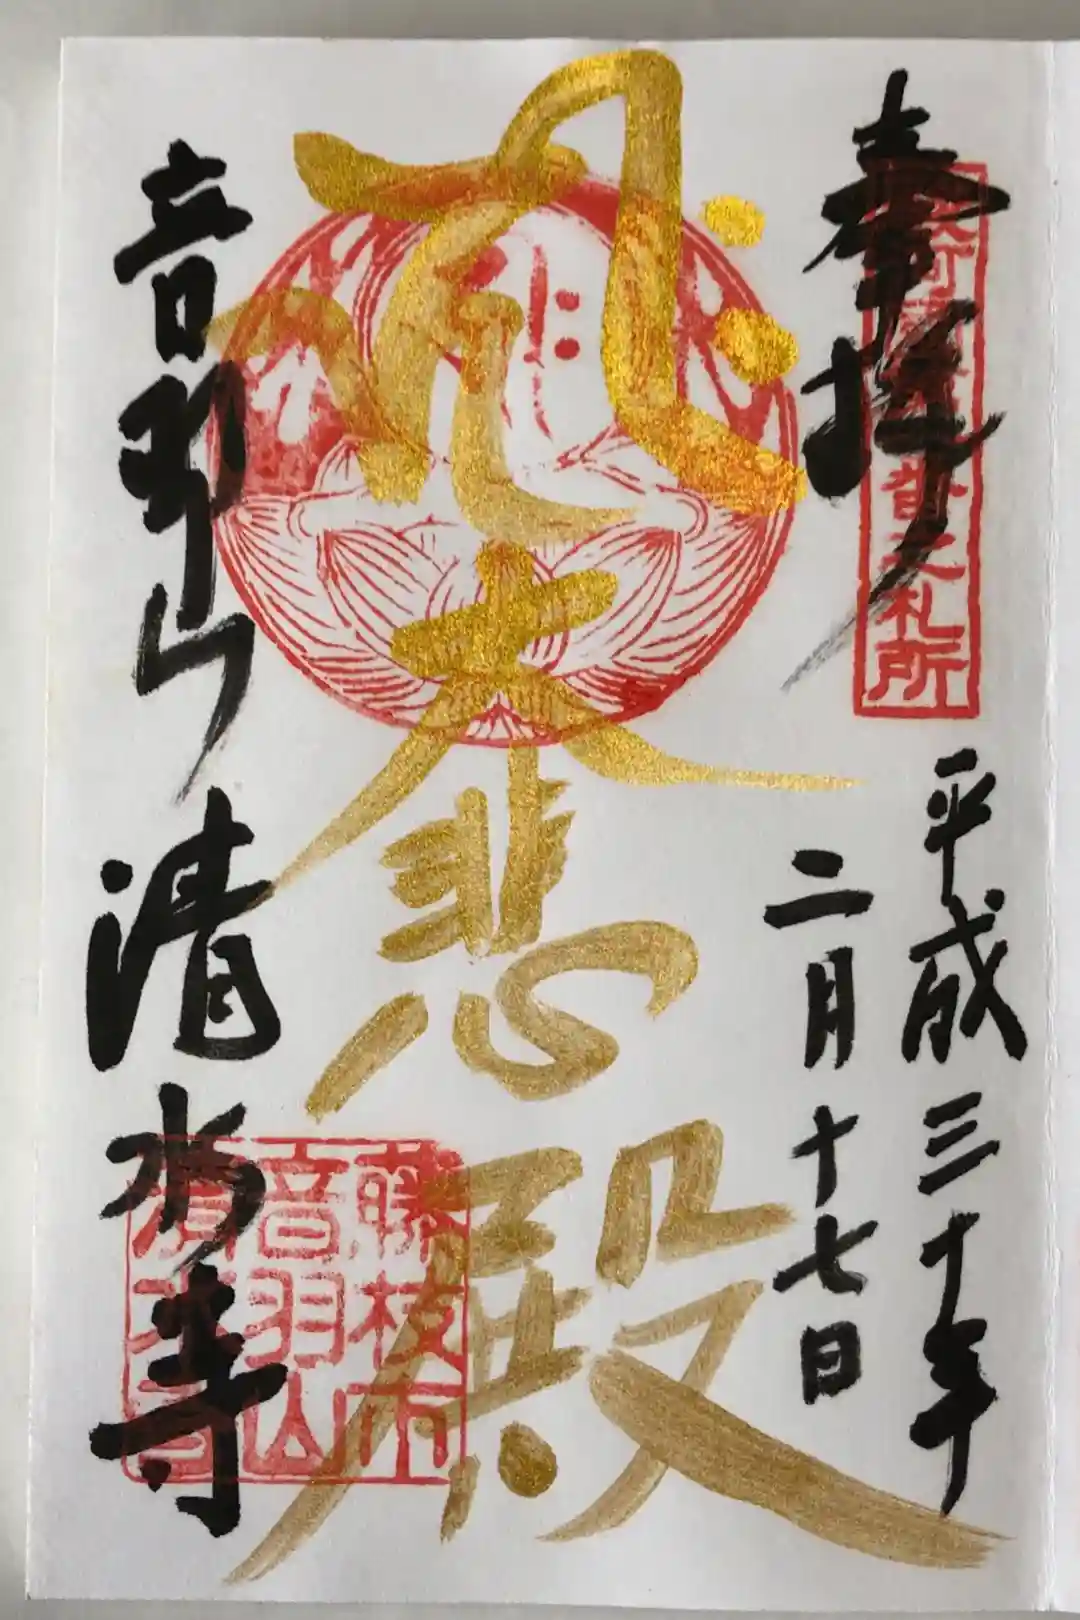 奉拝
音之札所
平成三十年
二月十七日
大悲殿
音羽山 清水寺
藤枝市
音羽山
清水寺